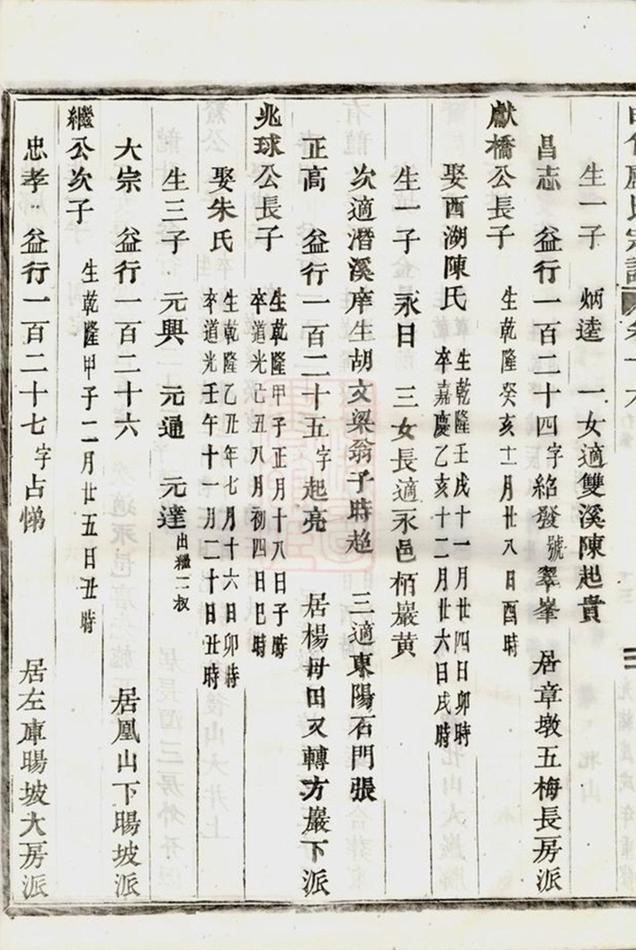 生一子 炳逵 一女適雙溪陳起貴
昌志 益行一百二十四字紹發號翠峯 居章墩五梅長房派
獻橋公長子 生乾隆癸亥十一月廿八日酉時
娶西湖陳氏 生乾隆壬戌十一月廿四日卯時
卒嘉慶乙亥十二月廿六日戌時
生一子 永日 三女長適永邑栢巖黄
次適潛溪庠生胡文梁翁子時趍 三適東陽石門張
正高 益行一百二十五字起亮 居楊母田又轉方巖下派
兆球公長子 生乾隆甲子正月十八日子時
卒道光亡五八月初四日巳時
娶朱氏 生乾隆乙丑年七月十六日卯時
卒道光壬午十一月二十日丑時
生三子 元興 元通 元達出繼二叔
大宗 益行一百二十六 居凰山下暘坡派
繼公次子 生乾隆甲子二月廿五日丑時
忠孝 益行一百二十七字占悌 居左庫暘坡大房派